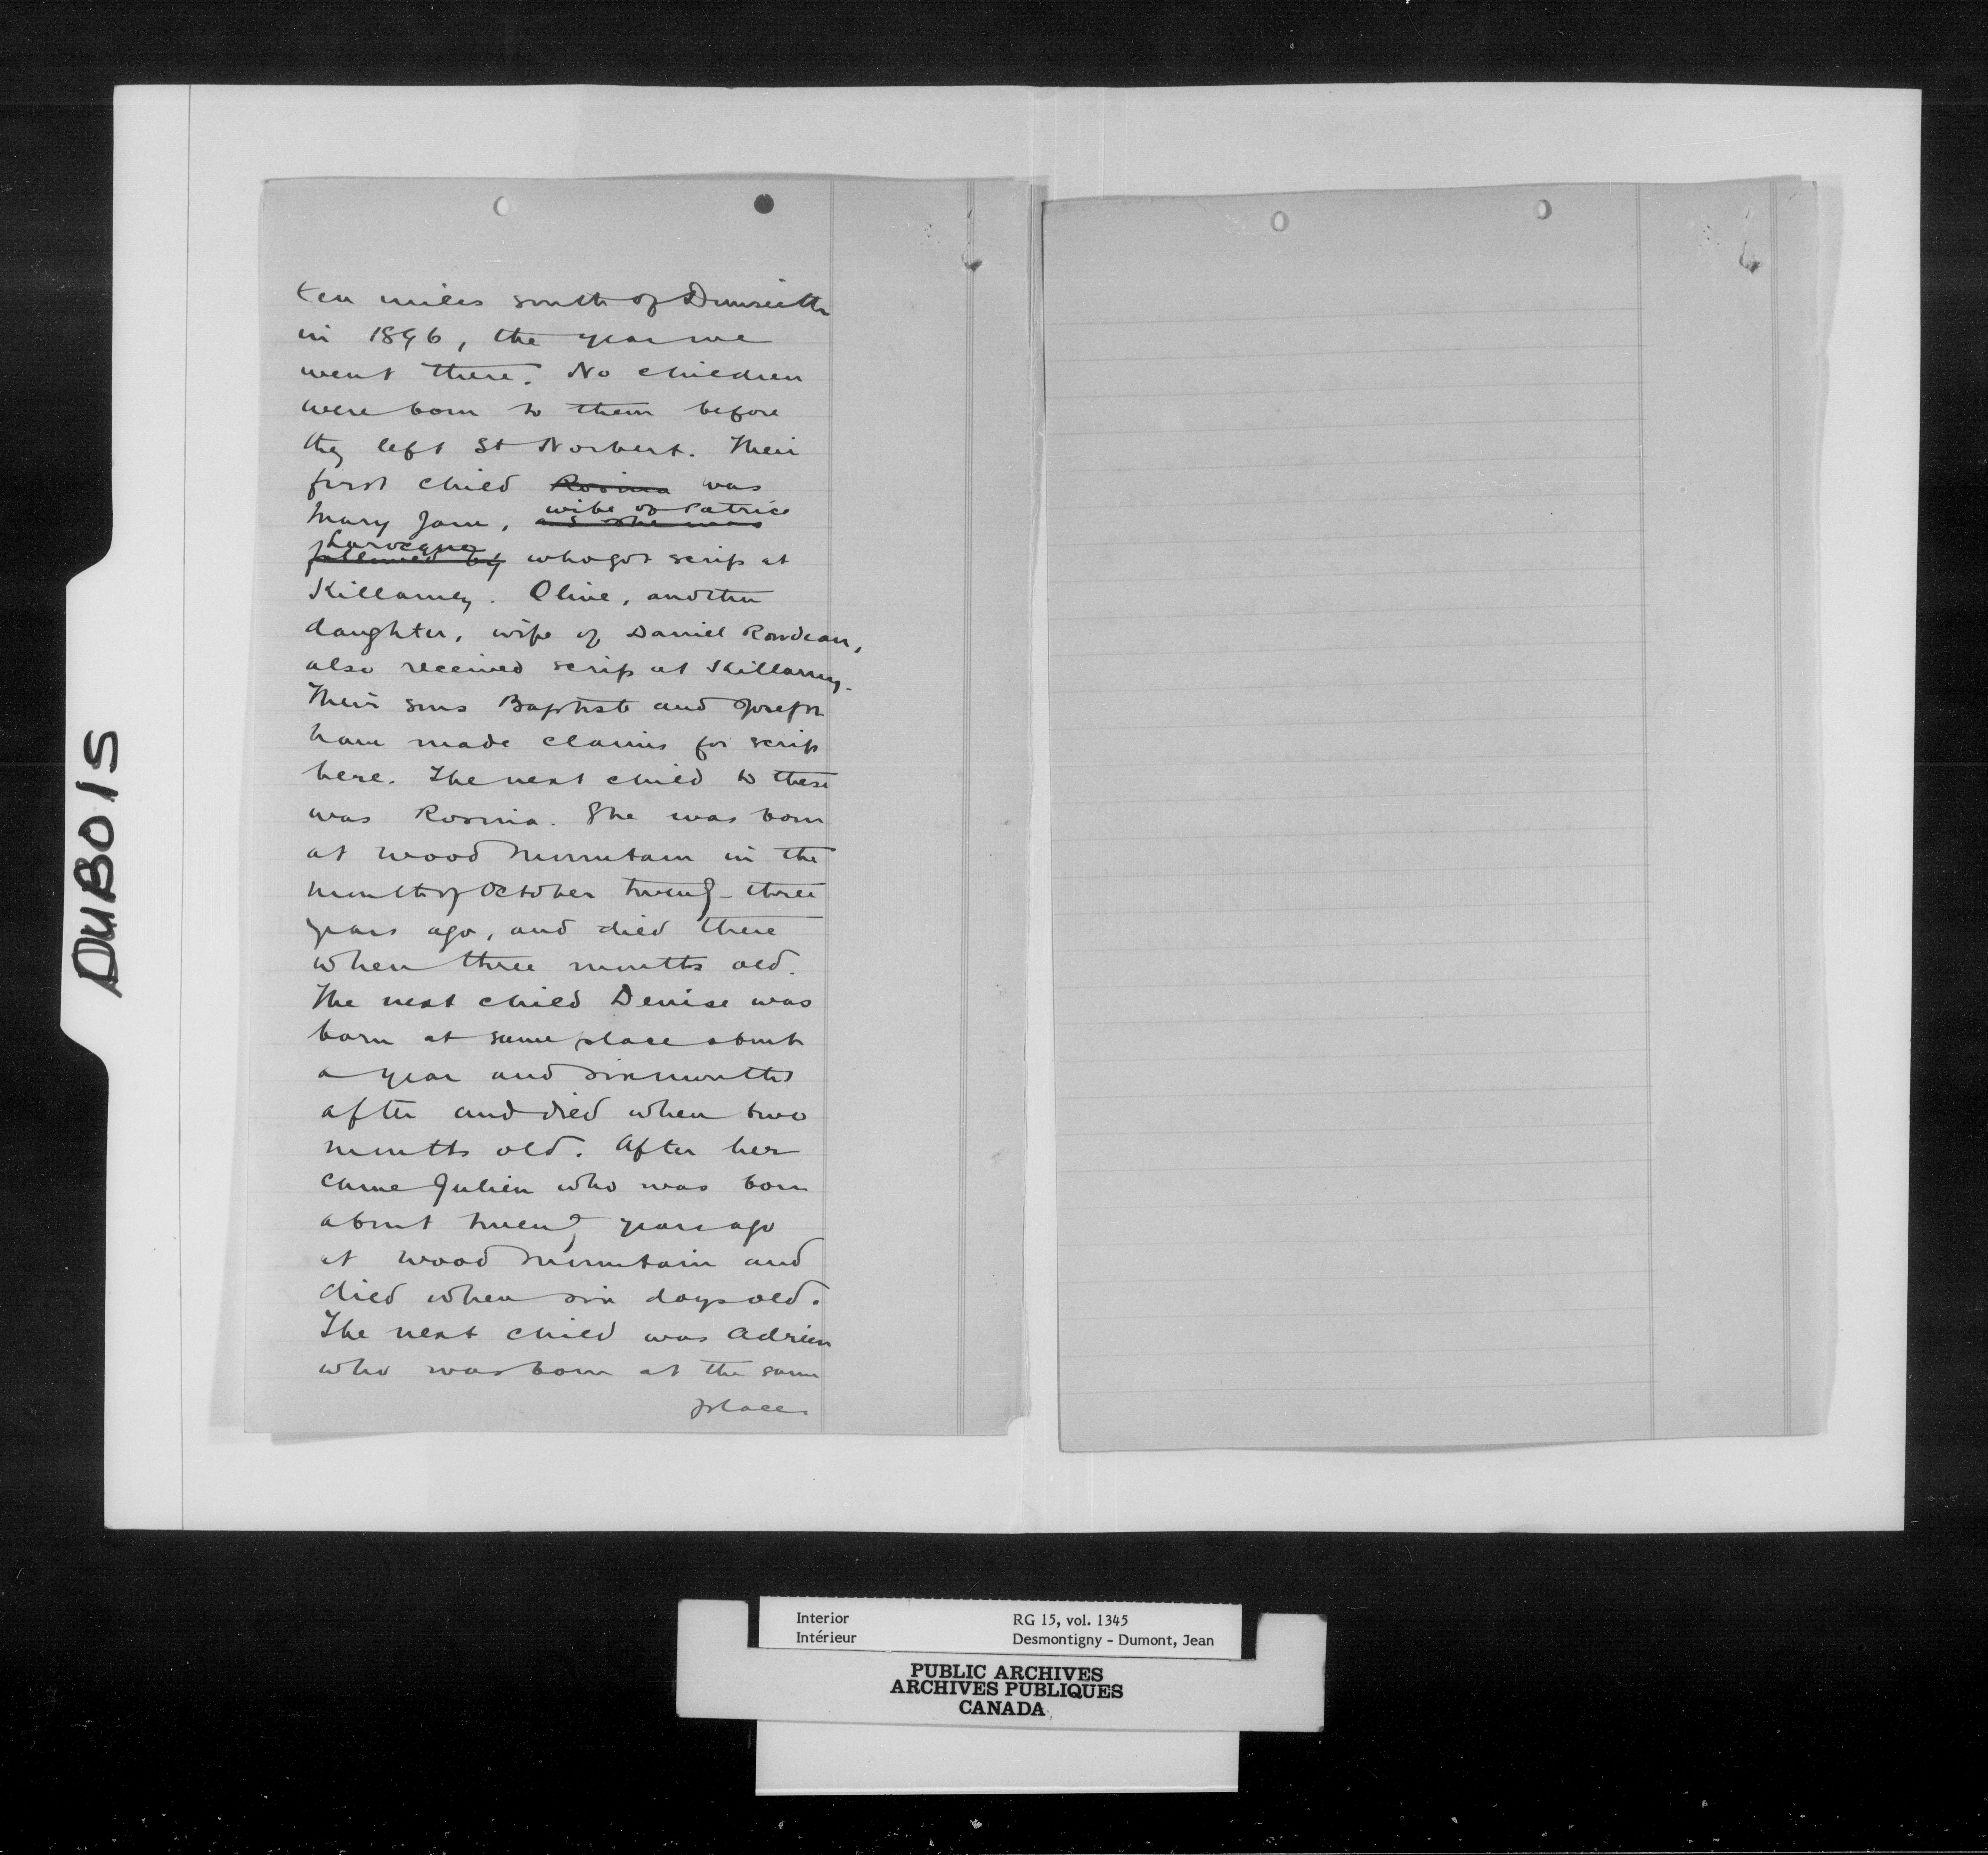 DUBOIS
ten miles south of Dunseith
in 1896, the year we
went there. No children
were born to them before
they left St Norbert. Their
first child Rosina was
wife of Patrice
Mary Jane, and she was
Larocque
followed by who got scrip at
Killarney. Olive, another
daughter, wife of Daniel Rondeau,
also received scrip at Killarney.
Their sons Baptiste and Joseph
have made claims for scrip
here. The next child to these
was Rosina. She was born
at Wood Mountain in the
month of October twenty-three
years ago, and died there
when three months old.
The next child Denise was
born at same place about
a year and six months
after and died when two
months old. After her
came Julien who was born
about twenty years ago
at Wood Mountain and
died when six days old.
The next child was Adrien
who was born at the same
place
Interior
Intérieur
RG 15, vol. 1345
Desmontigny - Dumont, Jean
PUBLIC ARCHIVES
ARCHIVES PUBLIQUES
CANADA